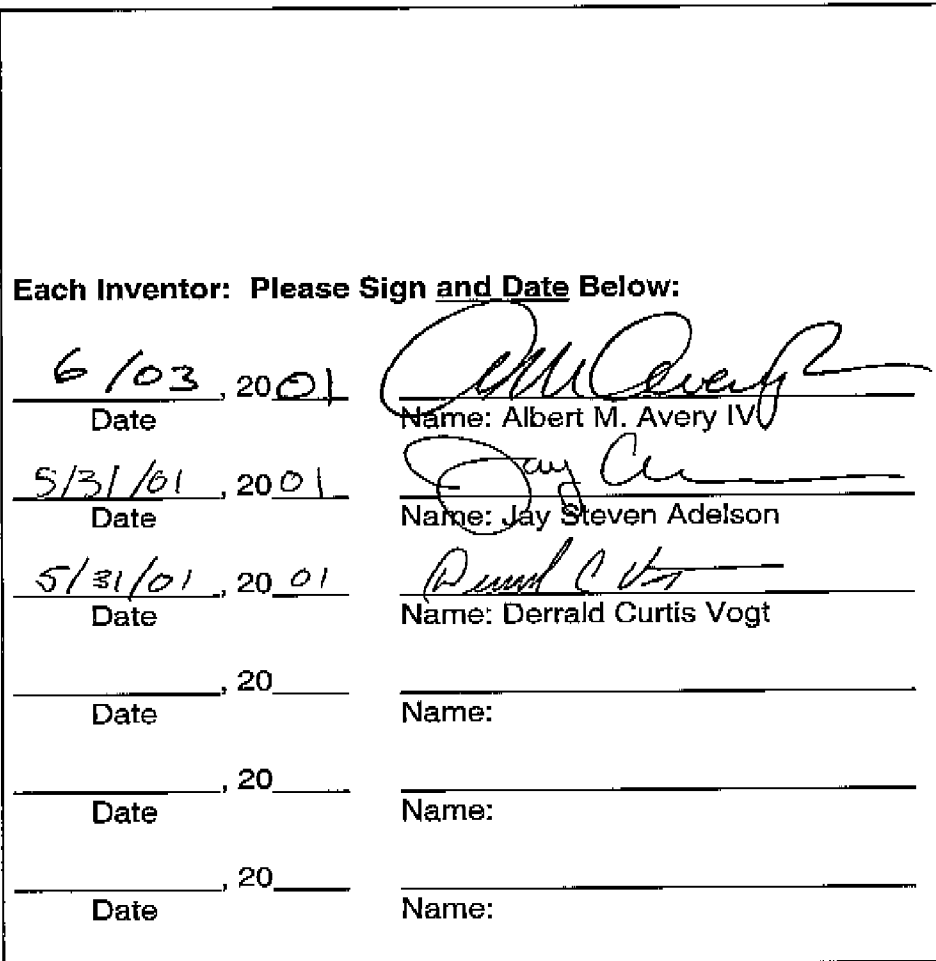 Each Inventor: Please Sign and Date Below:
6/03, 2001 AM Avery
Date Name: Albert M. Avery IV
5/31/01, 2001 Jay
Date Name: Jay Steven Adelson
5/31/01, 2001 Derrald C Vogt
Date Name: Derrald Curtis Vogt
, 20
Date Name:
, 20
Date Name:
, 20
Date Name: